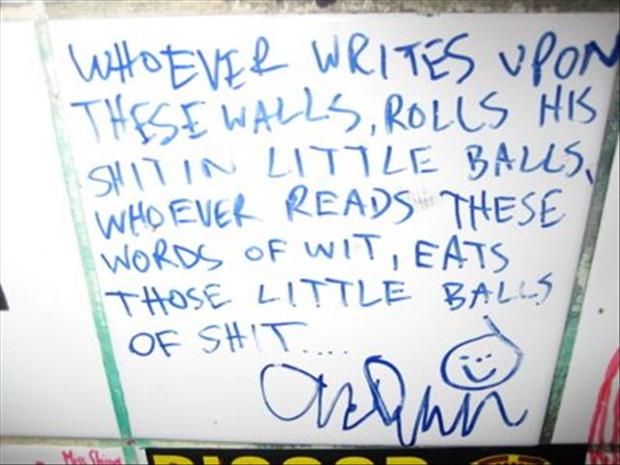 WHOEVER WRITES UPON
THESE WALLS, ROLLS HIS
SHIT IN LITTLE BALLS,
WHOEVER READS THESE
WORDS OF WIT, EATS
THOSE LITTLE BALLS
OF SHIT....